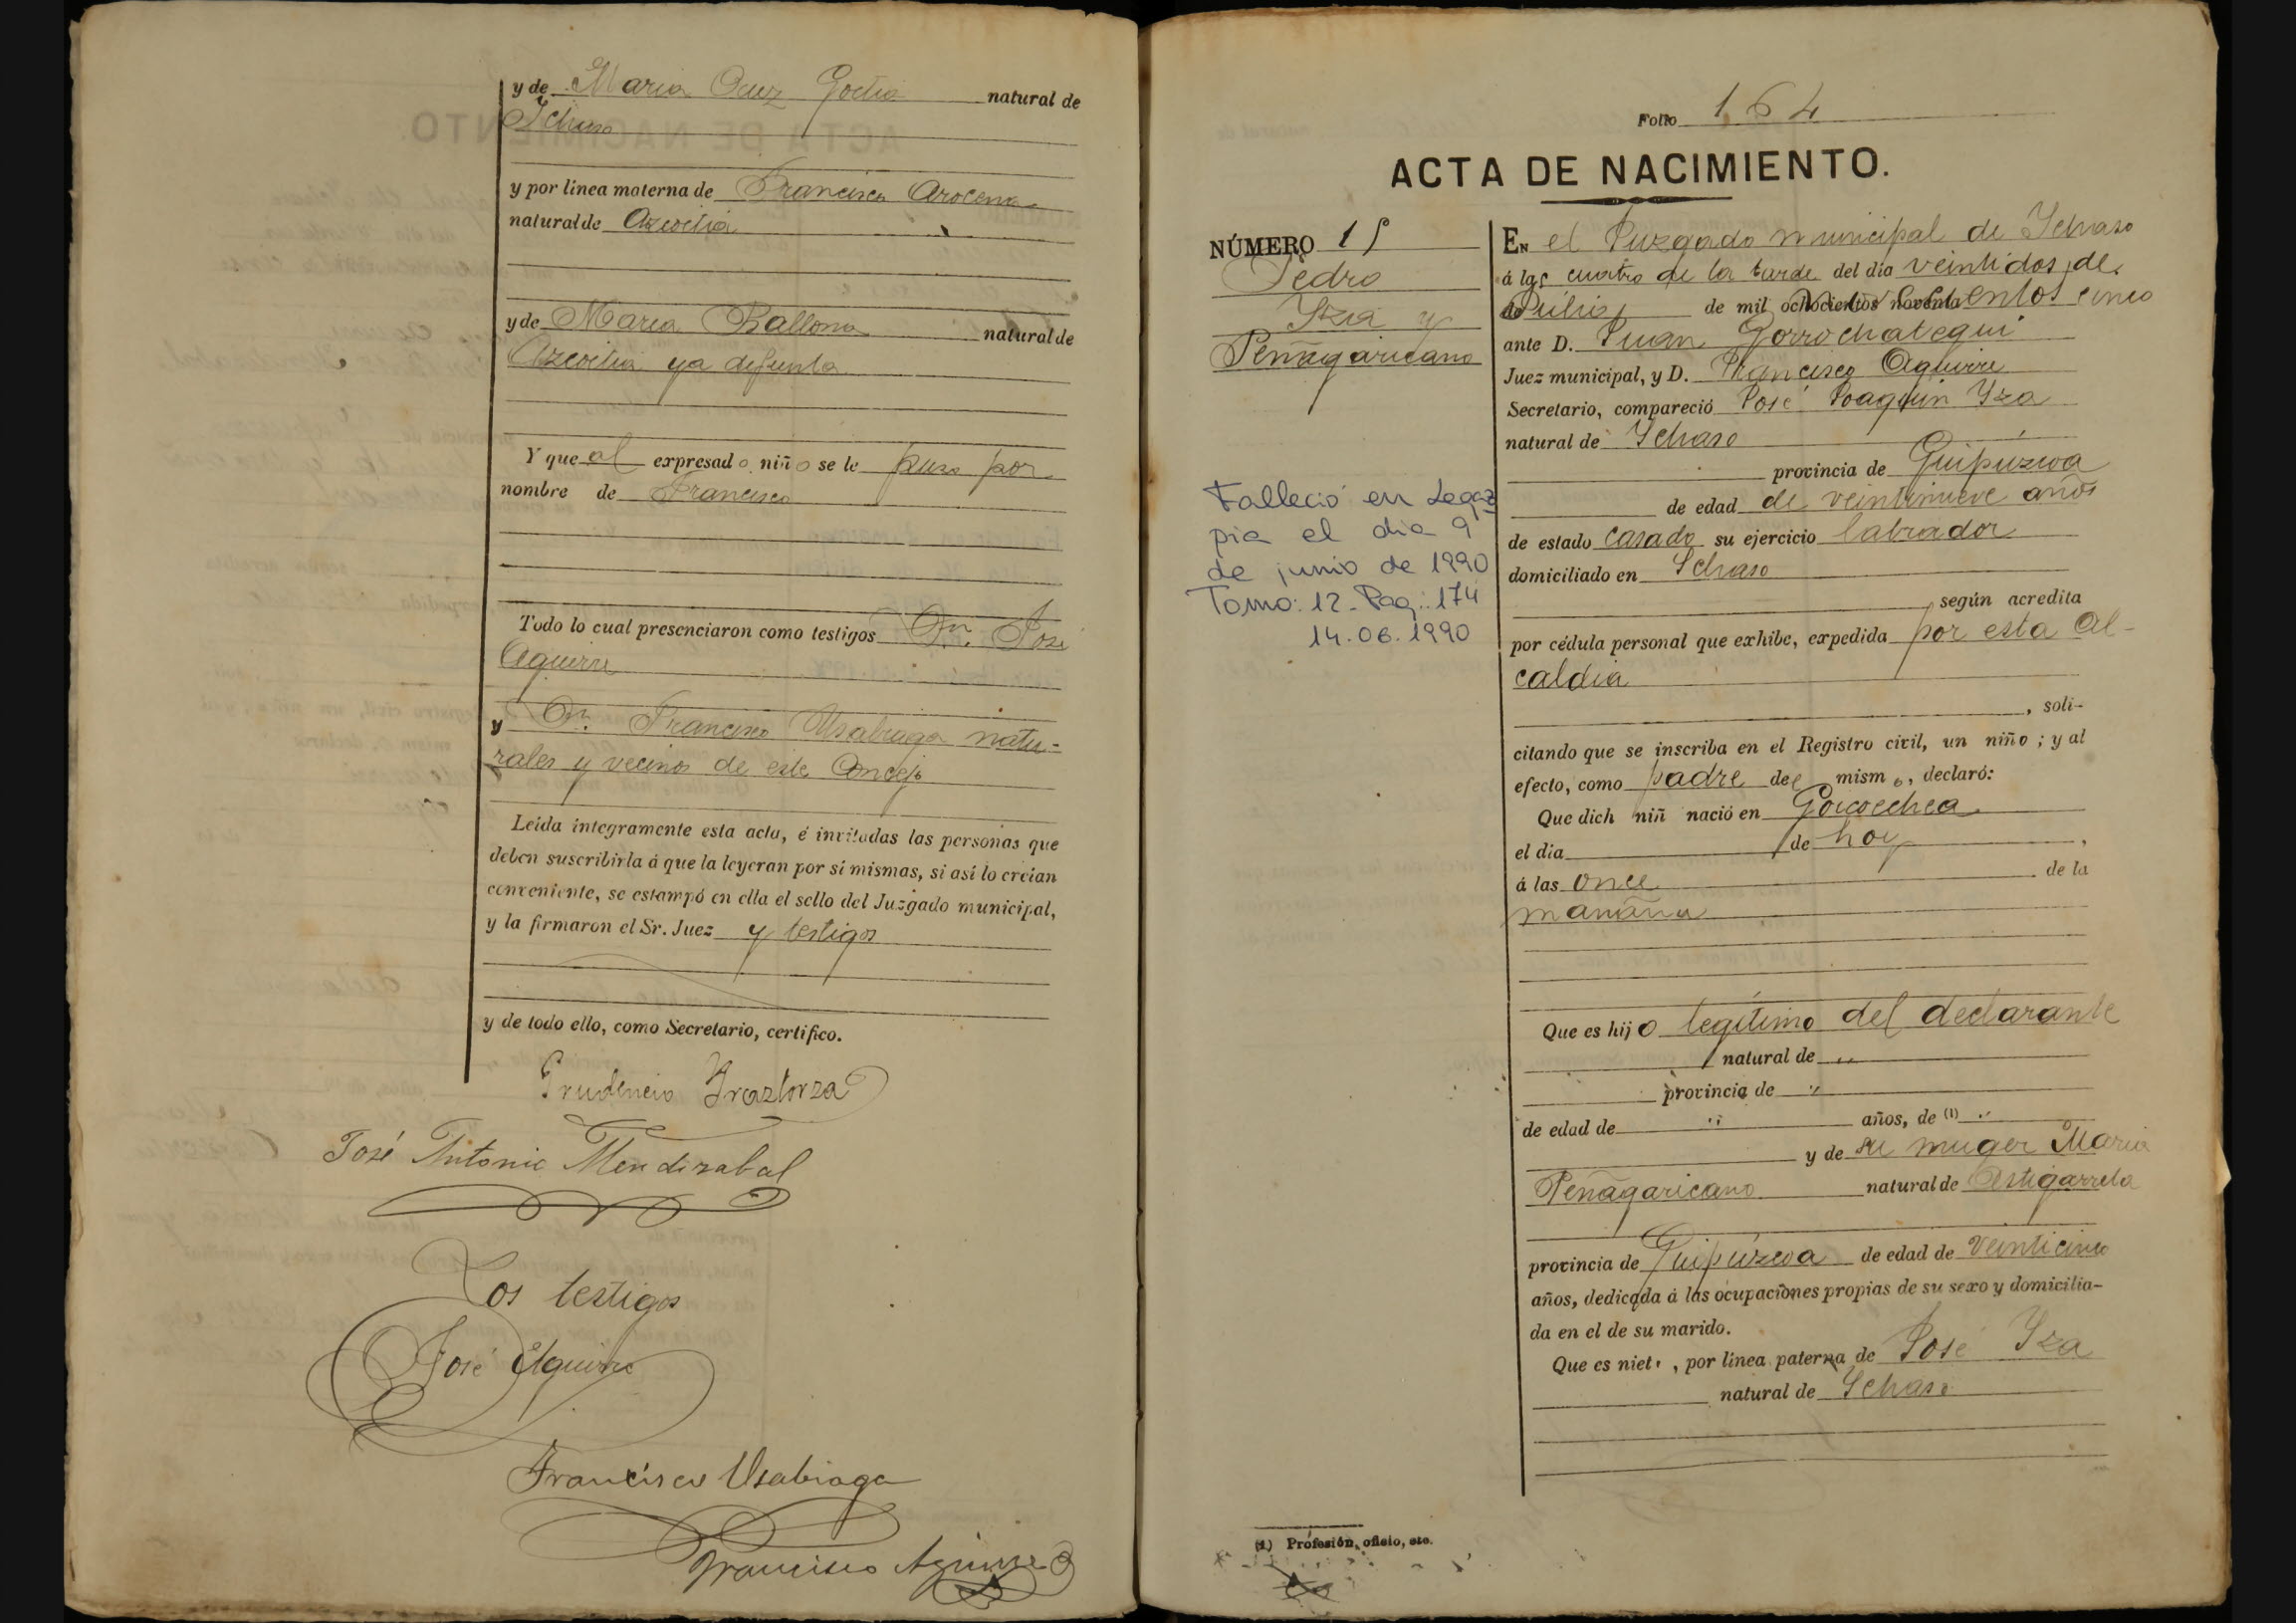 y de Maria Cruz Goitia natural de
Ichaso
y por línea materna de Francisco Arocena
natural de Azcoitia
y de Maria Ballona natural de
Azcoitia ya defunta
Y que al expresado niño se le puso por
nombre de Francisco
Todo lo cual presenciaron como testigos Dn. José
Aguirre
y Dn. Francisco Usabiaga natu-
rales y vecinos de este Concejo
Leída íntegramente esta acta, é invitadas las personas que
deben suscribirla á que la leyeran por sí mismas, si así lo creían
conveniente, se estampó en ella el sello del Juzgado municipal,
y la firmaron el Sr. Juez y testigos
y de todo ello, como Secretario, certifico.
Prudencio Yraztorza
José Antonio Mendizabal
Los testigos
José Aguirre
Francisco Usabiaga
Francisco Aguirre
Folio 164
ACTA DE NACIMIENTO.
NÚMERO 15
Pedro
Yza y
Peñagaricano
Falleció en Legaz
pia el dia 9
de junio de 1990
Tomo: 12 - Pag.: 174
14.06.1990
EN el Juzgado municipal de Ichaso
á las cuatro de la tarde del día veintidos de
Julio de mil ochocientos noventa cinco
ante D. Juan Gorrochategui
Juez municipal, y D. Francisco Aguirre
Secretario, compareció José Joaquin Yza
natural de Ichaso
provincia de Guipúzcoa
de edad de veintinueve años
de estado casado su ejercicio labrador
domiciliado en Ichaso
según acredita
por cédula personal que exhibe, expedida por esta Al-
caldia
, soli-
citando que se inscriba en el Registro civil, un niño; y al
efecto, como padre del mismo, declaró:
Que dich niñ nació en Goicoechea
el día de hoy,
á las once de la
mañana
Que es hijo legítimo del declarante
natural de "
provincia de "
de edad de " años, de (1) "
y de su muger Maria
Peñagaricano natural de Astigarreta
provincia de Guipúzcoa de edad de veinticinco
años, dedicada á las ocupaciones propias de su sexo y domicilia-
da en el de su marido.
Que es niet, por línea paterna de José Yza
natural de Ichaso
(1) Profesión, oficio, etc.